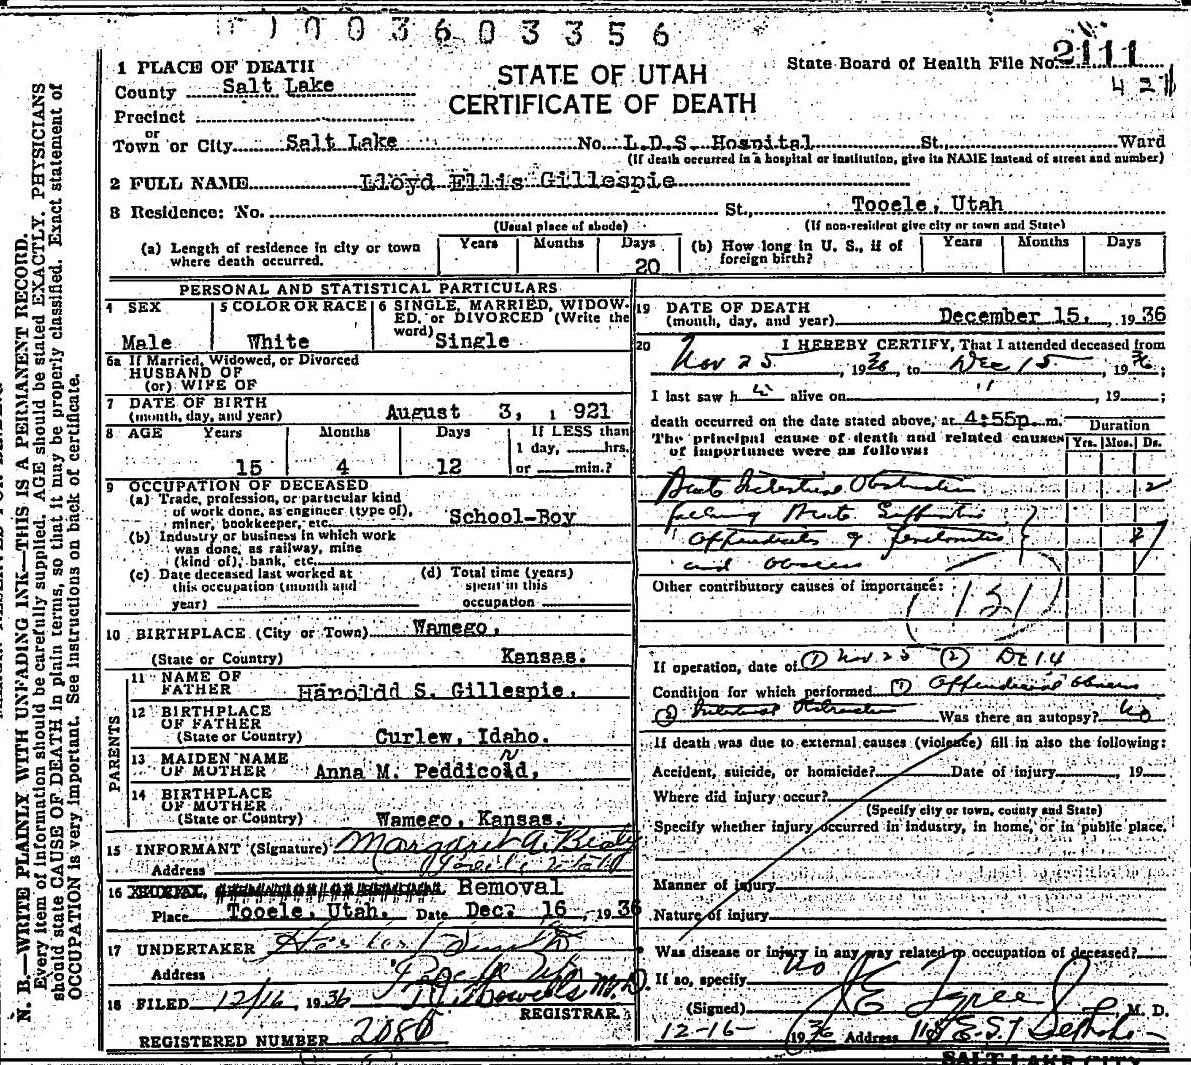 1003603356
1 PLACE OF DEATH
County Salt Lake
Precinct
or
Town or City Salt Lake No. L.D.S. Hospital St., Ward
(If death occurred in a hospital or institution, give its NAME instead of street and number)
STATE OF UTAH
CERTIFICATE OF DEATH
State Board of Health File No. 2111
421
2 FULL NAME Lloyd Ellis Gillespie
3 Residence: No. St., Tooele, Utah
(Usual place of abode) (If non-resident give city or town and State)
(a) Length of residence in city or town where death occurred. Years Months Days 20
(b) How long in U. S., if of foreign birth? Years Months Days
PERSONAL AND STATISTICAL PARTICULARS
4 SEX Male
5 COLOR OR RACE White
6 SINGLE, MARRIED, WIDOWED, or DIVORCED (Write the word) Single
6a If Married, Widowed, or Divorced
HUSBAND OF
(or) WIFE OF
7 DATE OF BIRTH
(month, day, and year) August 3, 1921
8 AGE Years Months Days If LESS than
1 day, hrs.
15 4 12 or min.?
9 OCCUPATION OF DECEASED
(a) Trade, profession, or particular kind
of work done, as engineer (type of),
miner, bookkeeper, etc. School-Boy
(b) Industry or business in which work
was done, as railway, mine
(kind of), bank, etc.
(c) Date deceased last worked at
this occupation (month and
year)
(d) Total time (years)
spent in this
occupation
10 BIRTHPLACE (City or Town) Wamego,
(State or Country) Kansas.
PARENTS
11 NAME OF
FATHER Haroldd S. Gillespie,
12 BIRTHPLACE
OF FATHER
(State or Country) Curlew, Idaho.
13 MAIDEN NAME
OF MOTHER Anna M. Peddicord,
14 BIRTHPLACE
OF MOTHER
(State or Country) Wamego, Kansas.
15 INFORMANT (Signature) Margaret A. Beaty
Address Tooele, Utah
16 Removal
Place Tooele, Utah. Date Dec. 16, 1936
17 UNDERTAKER
Address
18 FILED 12/16, 1936 M.D.
REGISTRAR.
REGISTERED NUMBER 2080
19 DATE OF DEATH
(month, day, and year) December 15, 1936
20 I HEREBY CERTIFY, That I attended deceased from
Nov 25, 1936, to Dec 15, 1936;
I last saw h alive on " , 19 ;
death occurred on the date stated above, at 4:55p. m.
The principal cause of death and related causes
of importance were as follows:
Duration
Yrs. Mos. Ds.
Acute Intestinal Obstruction 2
following Acute Suppurative
Appendicitis & Peritonitis
and Abscess
Other contributory causes of importance:
(121)
If operation, date of (1) Nov 25 (2) Dec 14
Condition for which performed (1) Appendiceal Abscess
(2) Intestinal Obstruction Was there an autopsy? No
If death was due to external causes (violence) fill in also the following:
Accident, suicide, or homicide? Date of injury , 19
Where did injury occur?
(Specify city or town, county and State)
Specify whether injury occurred in industry, in home, or in public place.
Manner of injury
Nature of injury
Was disease or injury in any way related to occupation of deceased?
If so, specify No
(Signed) M. D.
12-16- 1936 Address
SALT LAKE CITY
N. B.—WRITE PLAINLY WITH UNFADING INK—THIS IS A PERMANENT RECORD.
Every item of information should be carefully supplied. AGE should be stated EXACTLY. PHYSICIANS
should state CAUSE OF DEATH in plain terms, so that it may be properly classified. Exact statement of
OCCUPATION is very important. See instructions on back of certificate.